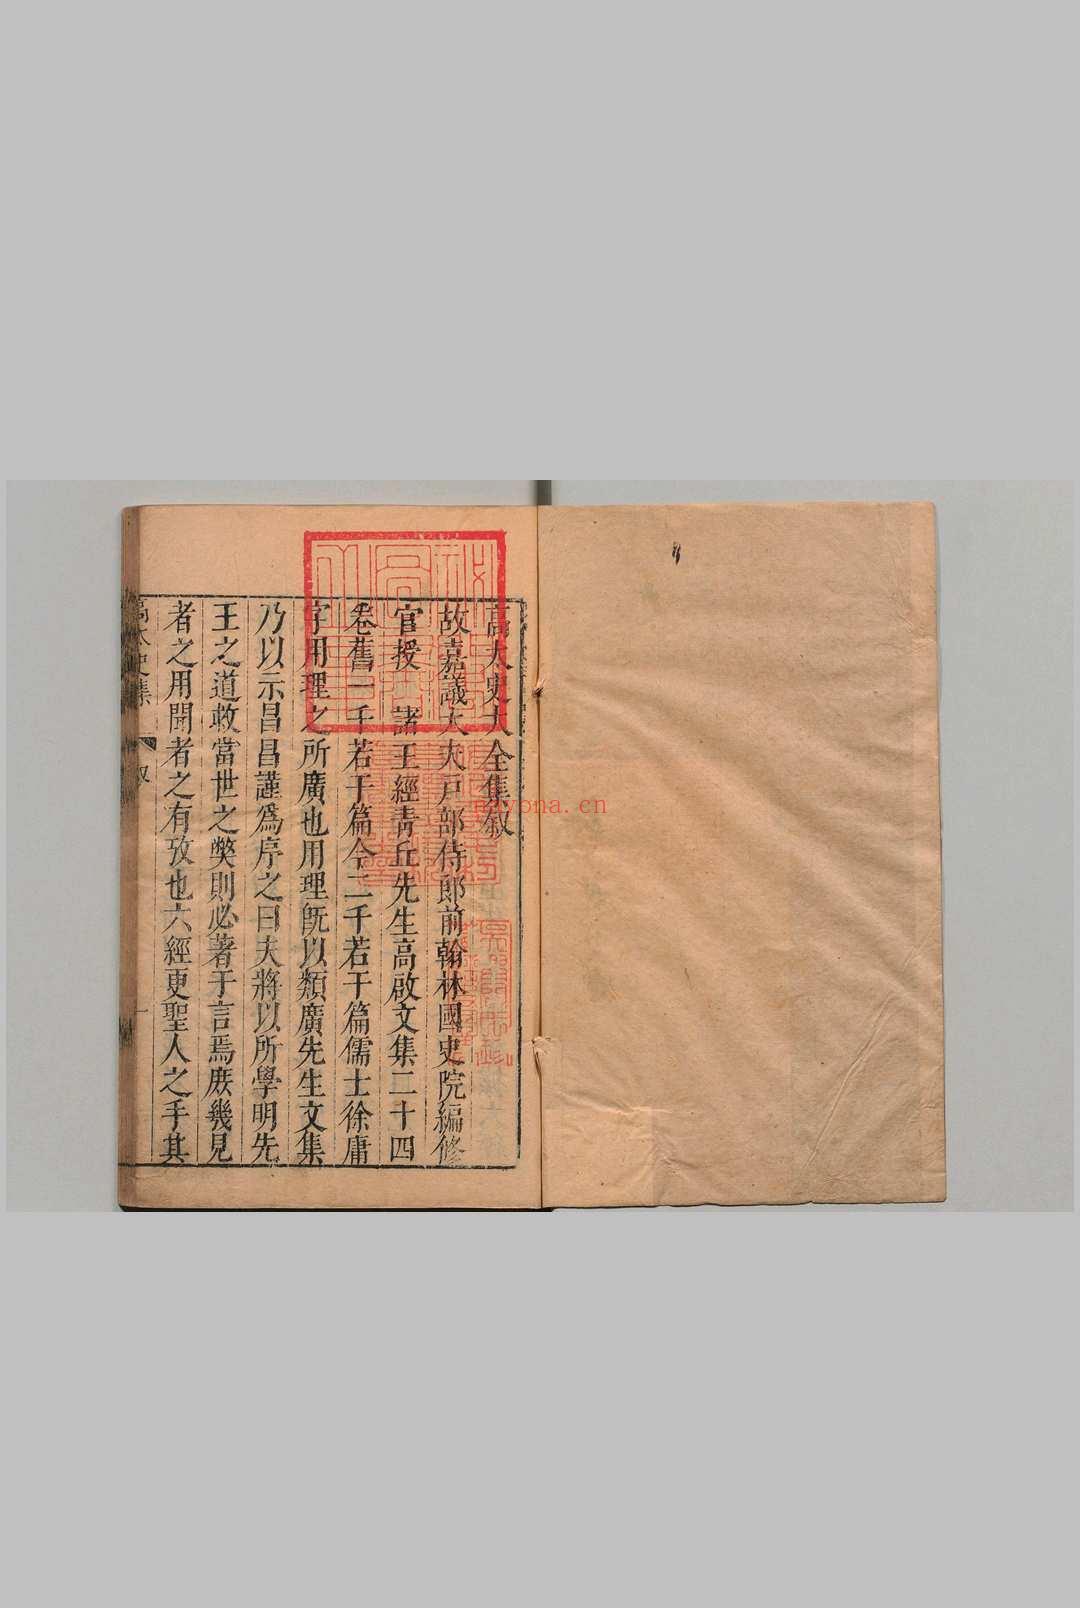 高太史大全集叙
故嘉議大夫戸部侍郎前翰林國史院編修
官授　諸王經青丘先生高啟文集二十四
卷舊一千若干篇今二千若干篇儒士徐庸
字用理之所廣也用理旣以類廣先生文集
乃以示昌昌謹爲序之曰夫將以所學明先
王之道救當世之弊則必著于言焉庻幾見
者之用聞者之有攷也六經更聖人之手其
高太史集
叙
一
nayona.cn